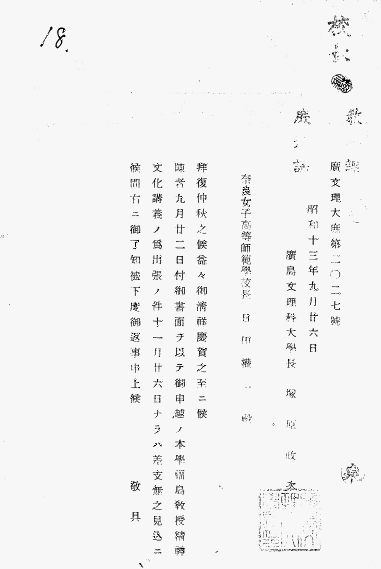 18.
廣文理大庶第二〇二七號
昭和十三年九月廿六日
廣島文理科大學長 塚原政次
奈良女子高等師範學校長
拜復仲秋之候益々御淸祥慶賀之至ニ候
陳者九月廿二日付御書面ヲ以テ御申越ノ本學福島敎授
文化講義ノ爲出張ノ件十一月廿六日ナラハ差支無之見込ニ
候間右ニ御了知被下度御返事申上候
敬具